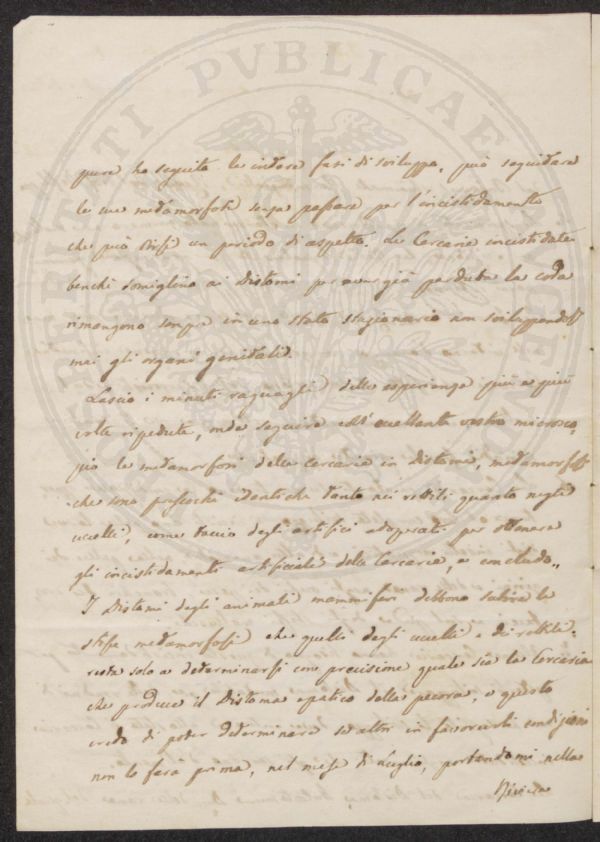 pure ha seguito le intere fasi di sviluppo, può seguitare
le sue metamorfosi senza passare per l'incistidamento
che può dirsi un periodo di aspetto. Le Cercarie incistidate
benchè somiglino ai Distomi per aver già perduta la coda
rimangono sempre in uno stato stazionario non sviluppandosi
mai gli organi genitali.
Lascio i minuti ragguagli delle esperienze più e più
volte ripetute, onde seguire coll' eccellente vostro microsco,
pio le metamorfosi delle cercarie in Distomi, metamorfosi
che sono pressochè identiche tanto nei rettili quanto negli
uccelli, come taccio degli artifici adoperati per ottenere
gli incistidamenti artificiali delle Cercarie, e concludo,,
I Distomi degli animali mammiferi debbono subire le
stesse metamorfosi che quelli degli uccelli e dei rettili:
resta solo a determinarsi con precisione quale sia la Cercaria
che produce il Distoma epatico della pecora, e questo
credo di poter determinare se altri in favorevoli condizioni
non lo farà prima, nel mese di Luglio, portandomi nella
Riviera
PVBLICAE